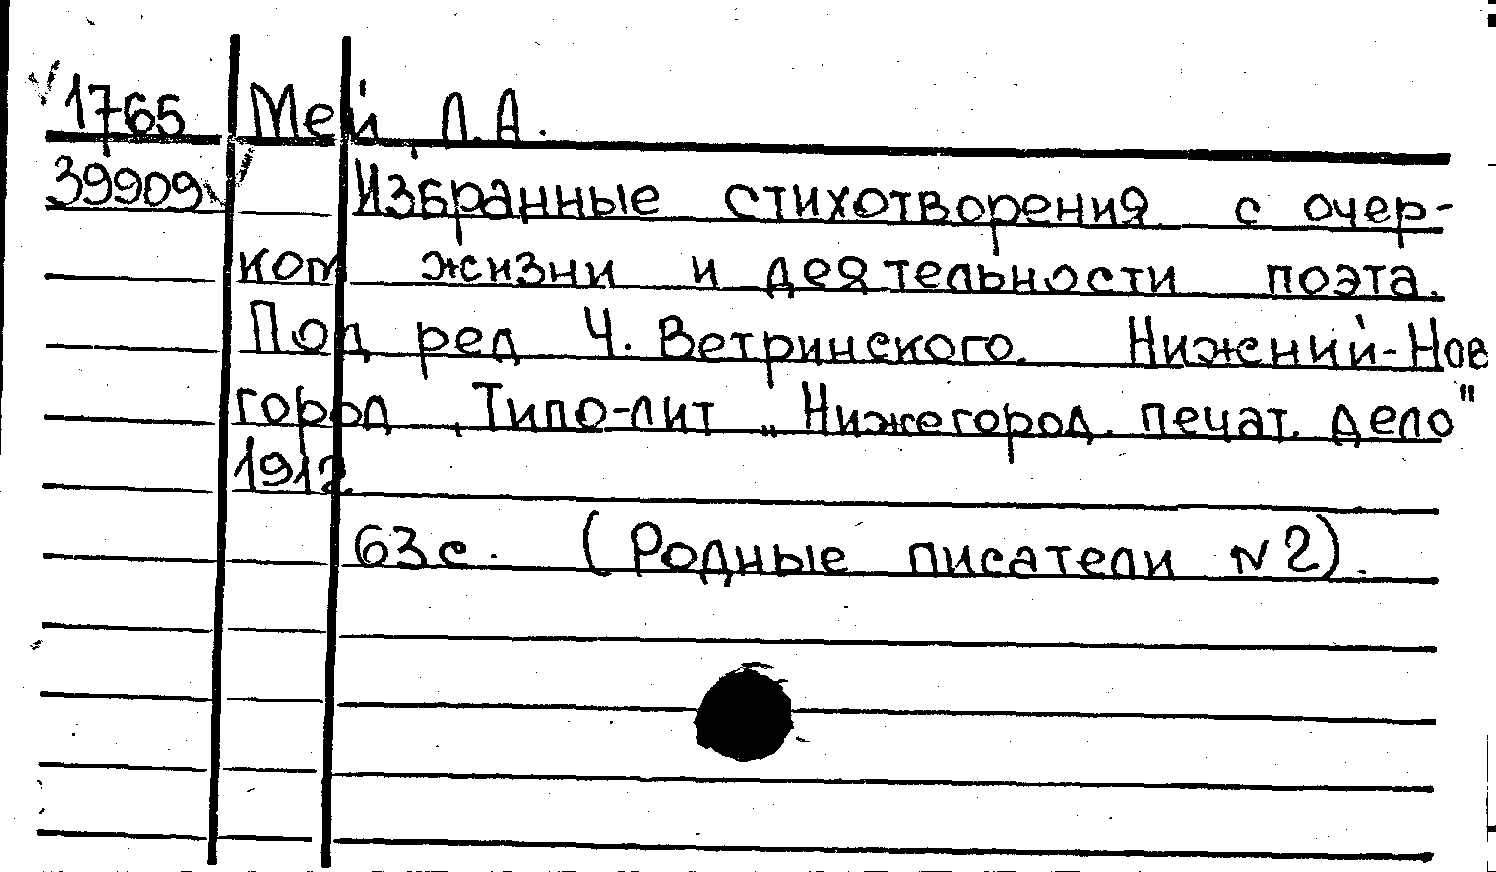 1765 Мей Л.А.
39909 Избранные стихотворения с очер-
ком жизни и деятельности поэта.
Под ред Ч. Ветринского. Нижний-Нов
город, Типо-лит „Нижегород. печат. дело"
1912
63 с. (Родные писатели №2).